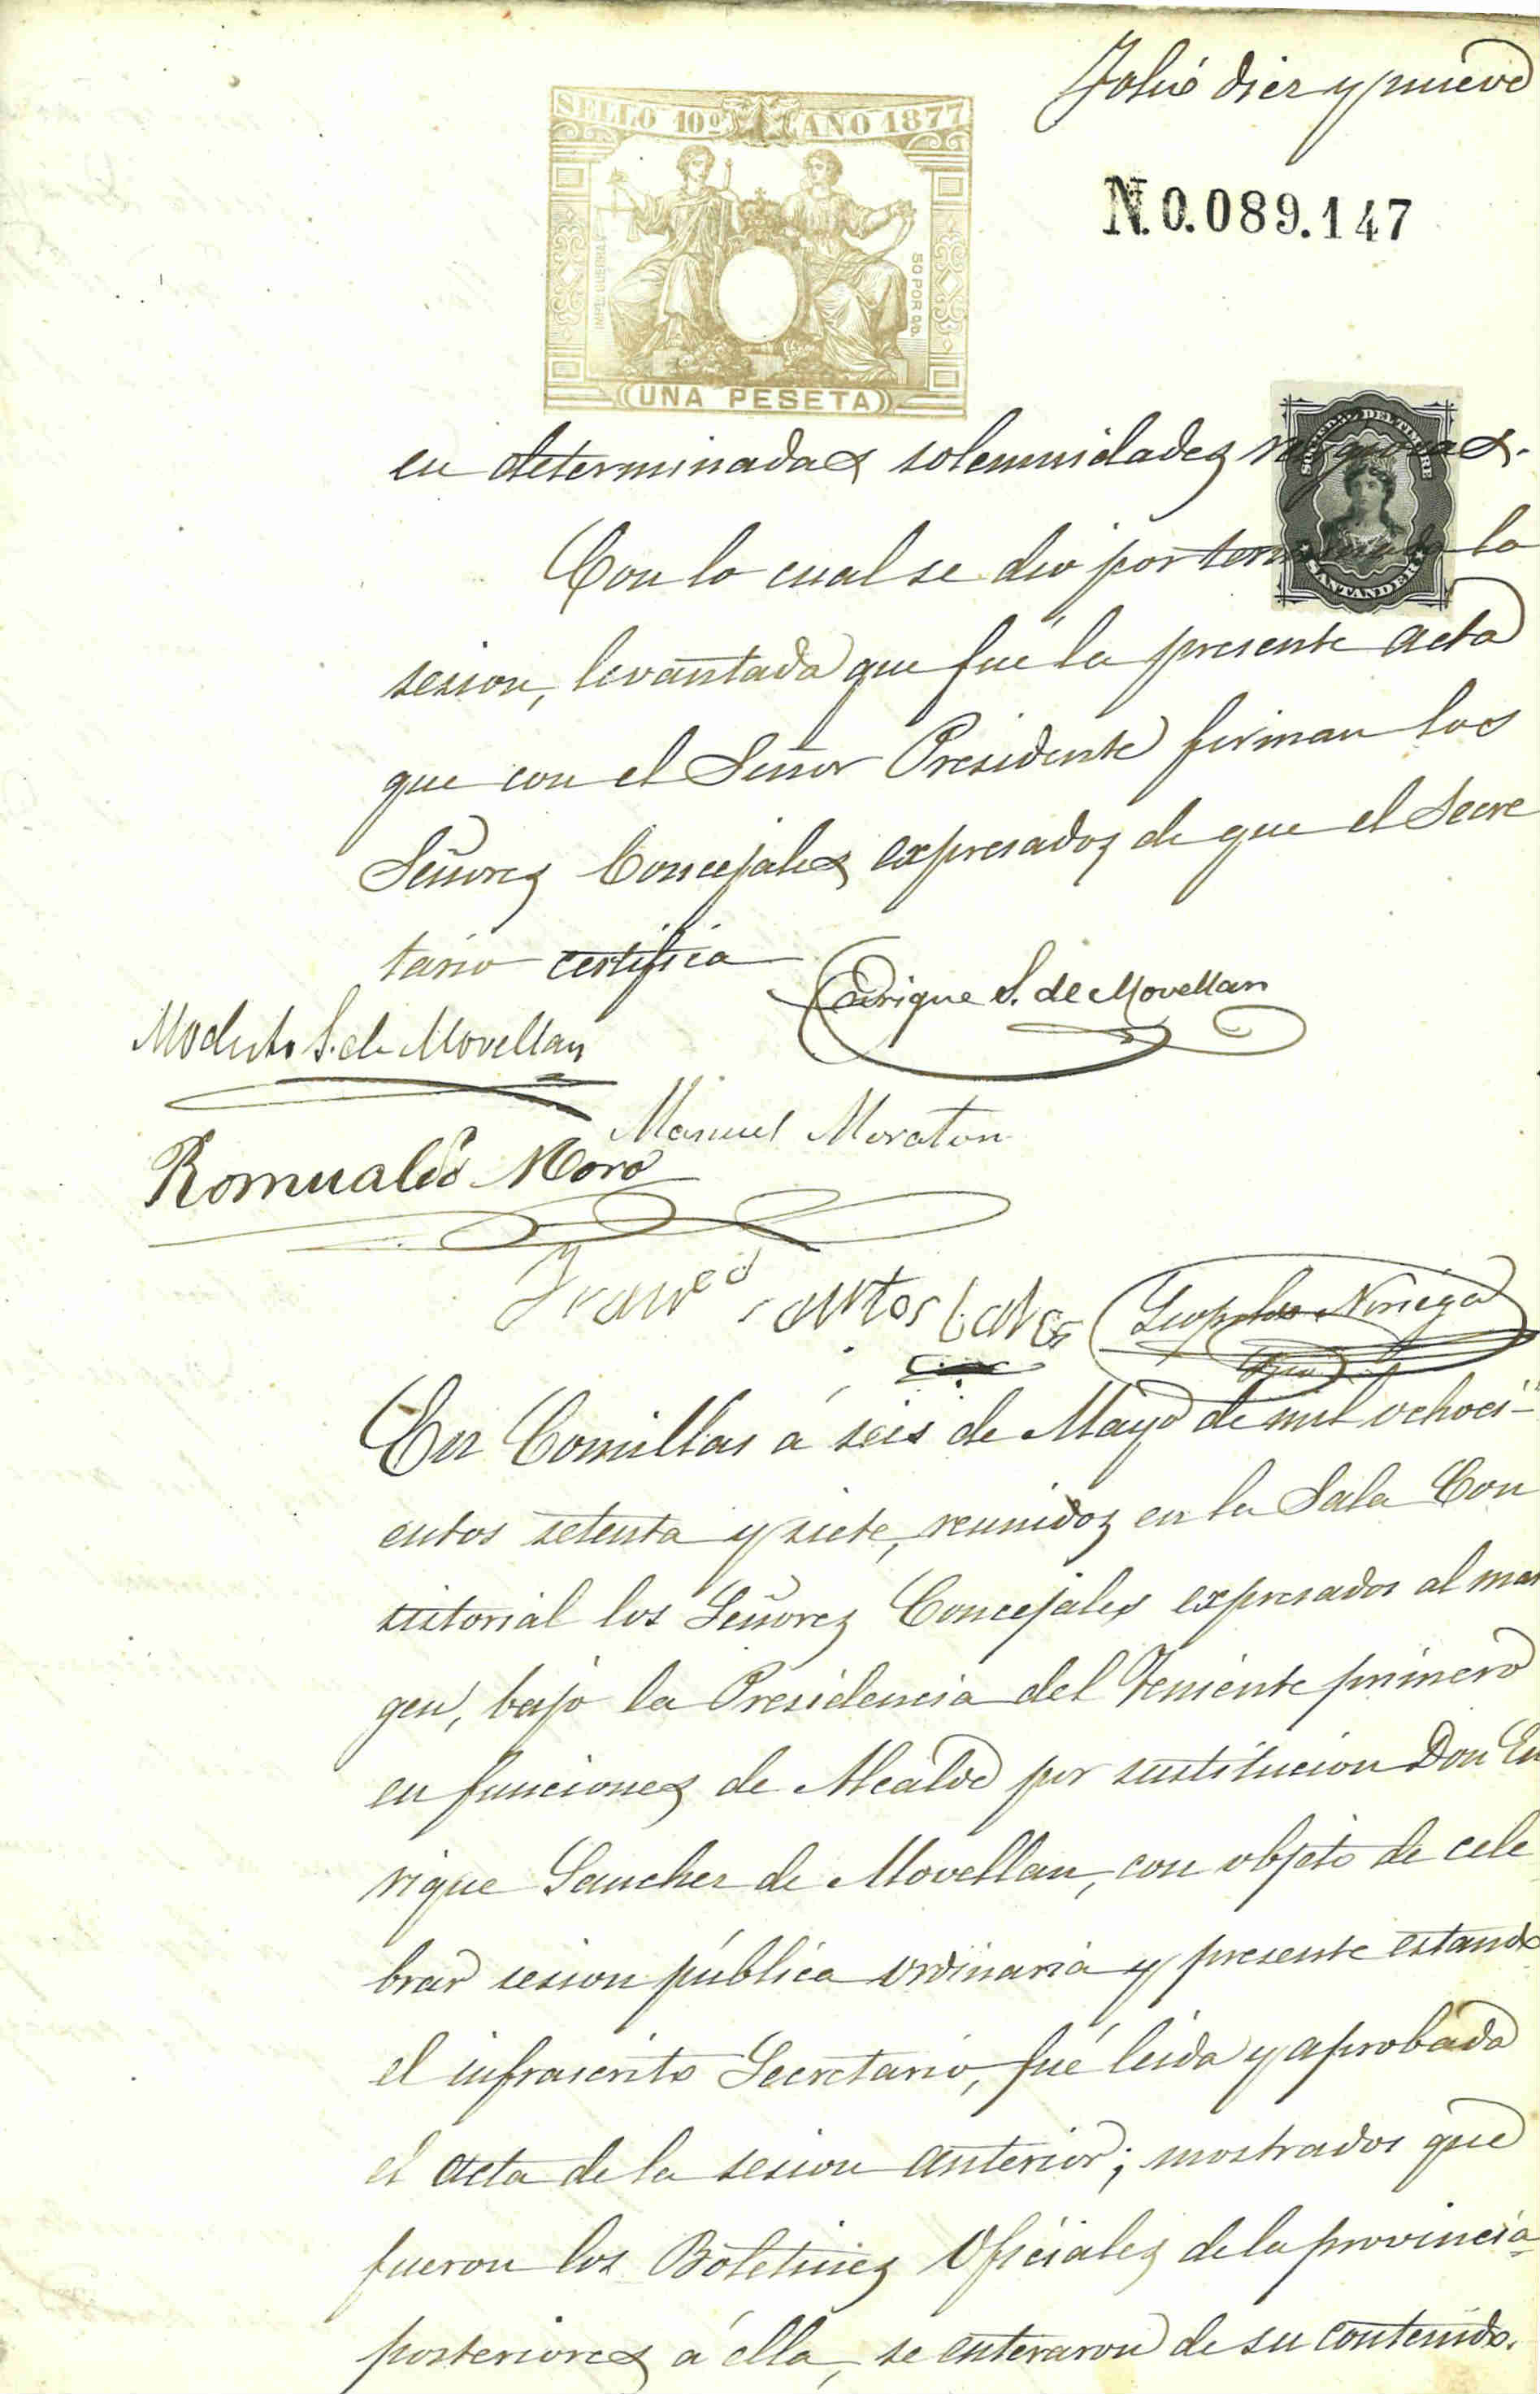 Folio diez y nueve
SELLO 10º AÑO 1877
N.0.089.147
IMPTE GUERRA
50 POR 00.
UNA PESETA
SOCDAD DEL TIMBRE
SANTANDER
en determinadas solemnidades religiosas.
Con lo cual se dio por terminada la
sesion, levantada que fué la presente acta
que con el Señor Presidente firman los
Señores Concejales expresados de que el Secre
tario certifica
Enrique S. de Movellan
Modesto S. de Movellan
Manuel Moraton
Romualdo Moro
Franco Santos
Leopoldo Noriega
Srio
En Comillas á seis de Mayo de mil ochoci-
entos setenta y siete, reunidos en la Sala Con
sistorial los Señores Concejales expresados al mar
gen, bajo la Presidencia del Teniente primero
en funciones de Alcalde por sustitucion Don En
rique Sanchez de Movellan, con objeto de cele
brar sesion pública ordinaria y presente estando
el infrascrito Secretario, fué leida y aprobada
el acta de la sesion anterior; mostrados que
fueron los Boletines Oficiales de la provincia
posteriores á ella, se enteraron de su contenido.